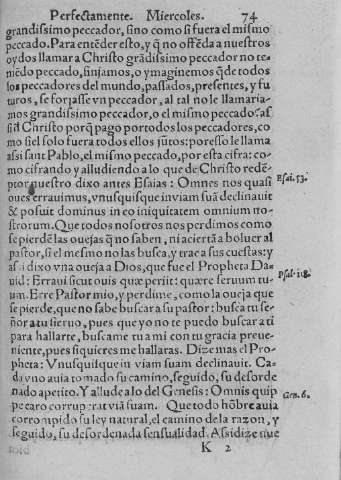 Perfectamente. Miercoles. 74
grandissimo peccador, sino como si fuera el mismo
peccado. Para entēder esto, y q̃ no offēda a nuestros
oydos llamar a Christo grādissimo peccador no te-
niēdo peccado, finjamos, o ymaginemos q̃ de todos
los peccadores del mundo, passados, presentes, y fu
turos, se forjasse vn peccador, al tal no le llamaria-
mos grandissimo peccador, o el mismo peccado: as
si a Christo porq̃ pago por todos los peccadores, co
mo si el solo fuera todos ellos jūtos: por esso le llama
assi sant Pablo, el mismo peccado, por esta cifra: co-
mo cifrando y alludiendo a lo que de Christo redē-
ptor nuestro dixo antes Esaias: Omnes nos quasi
oues errauimus, vnusquisque in viam suā declinauit
Esai. 53.
& posuit dominus in eo iniquitatem omnium no-
strorum. Que todos nosotros nos perdimos como
se pierdē las ouejas q̃ no saben, ni aciertā a boluer al
pastor, si el mesmo no las busca, y trae a sus cuestas: y
assi dixo vna oueja a Dios, que fue el Propheta Da-
uid: Erraui sicut ouis quæ perijt: quære seruum tu-
Psal. 118.
um. Erre Pastor mio, y perdime, como la oueja que
se pierde, que no sabe buscar a su pastor: busca tu se-
ñor a tu sieruo, pues que yo no te puedo buscar a ti
para hallarte, buscame tu a mi con tu gracia preue-
niente, pues si quieres me hallaras. Dize mas el Pro-
pheta: Vnusquisque in viam suam declinauit. Ca-
da vno auia tomado su camino, seguido, su desorde
nado apetito. Y allude a lo del Genesis: Omnis quip
pe caro corruperat viā suam. Que todo hōbre auia
Gen. 6.
corrompido su ley natural, el camino de la razon, y
seguido, su desordenada sensualidad. Assi dize que
K 2